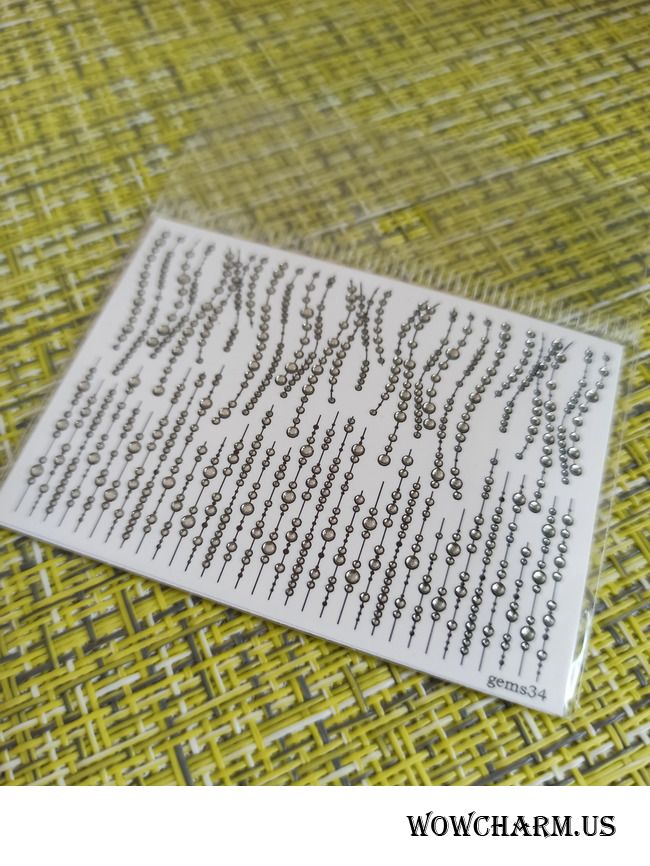 gems34
WOWCHARM.US